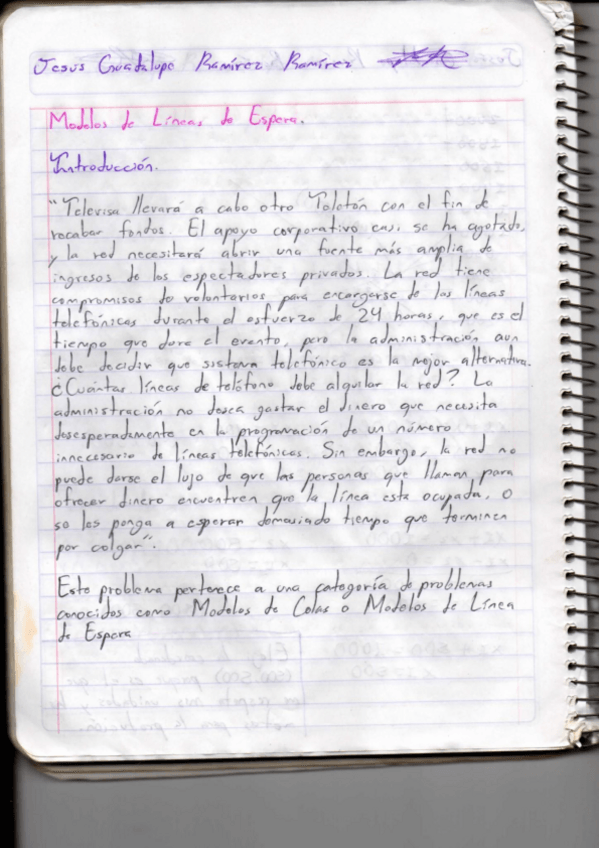 Jesus Guadalupe Ramírez Ramírez
Modelos de Líneas de Espera.
Introducción.
"Televisa llevará a cabo otro Teletón con el fin de
recabar fondos. El apoyo corporativo casi se ha agotado,
y la red necesitará abrir una fuente más amplia de
ingresos de los espectadores privados. La red tiene
compromisos de voluntarios para encargarse de las líneas
telefónicas durante el esfuerzo de 24 horas, que es el
tiempo que dura el evento, pero la administración aun
debe decidir que sistema telefónico es la mejor alternativa.
¿Cuántas líneas de teléfono debe alquilar la red? La
administración no desea gastar el dinero que necesita
desesperadamente en la programación de un número
innecesario de líneas telefónicas. Sin embargo, la red no
puede darse el lujo de que las personas que llaman para
ofrecer dinero encuentren que la línea esta ocupada, o
se les ponga a esperar demasiado tiempo que terminen
por colgar".
Este problema pertenece a una categoría de problemas
conocidos como Modelos de Colas o Modelos de Línea
de Espera